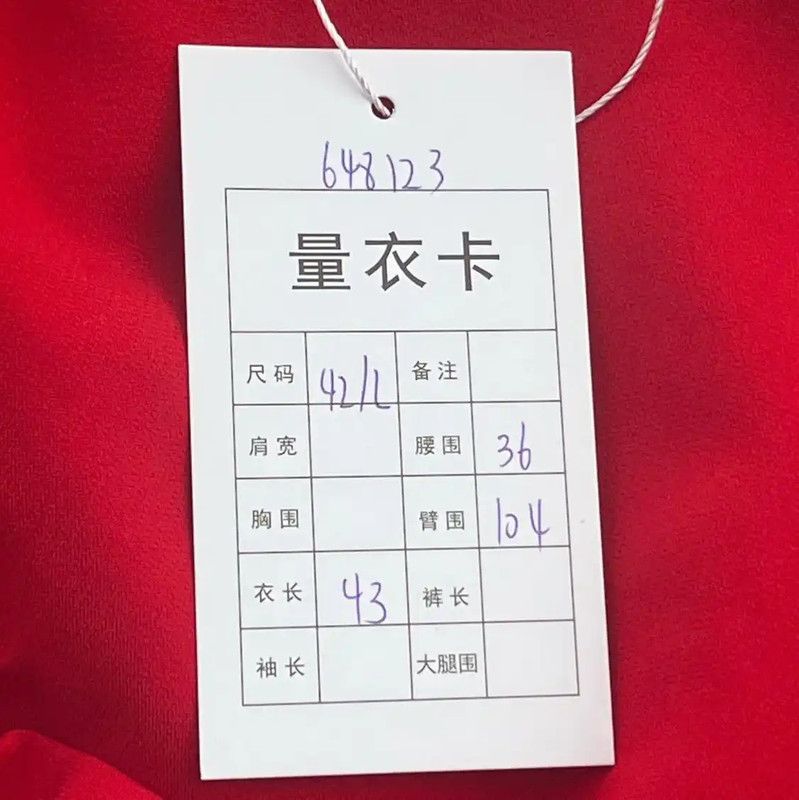 648123
量衣卡
尺码 42/L 备注
肩宽 腰围 36
胸围 臂围 104
衣长 43 裤长
袖长 大腿围